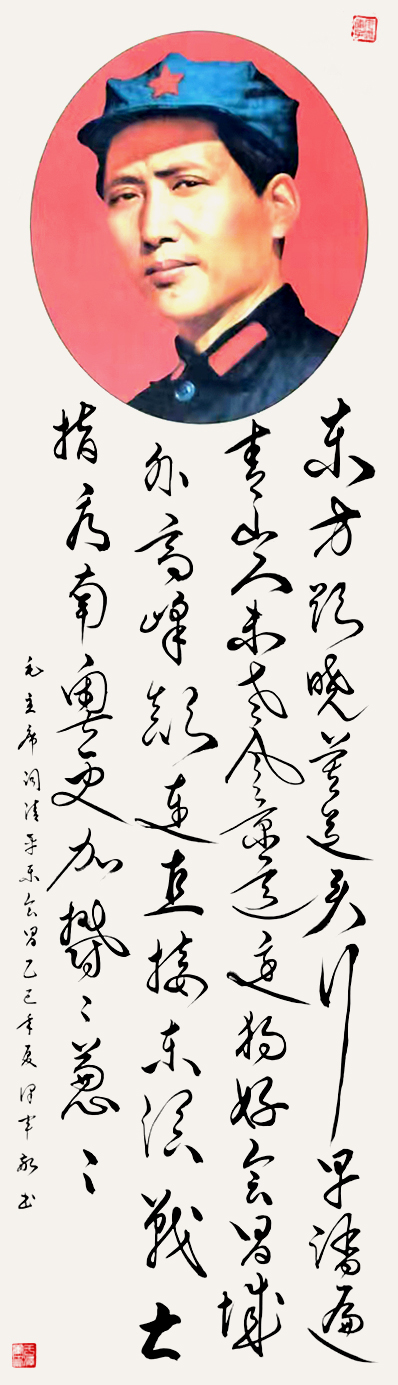 东方欲晓莫道君行早踏遍
青山人未老风景这边独好会昌城
外高峰颠连直接东溟战士
指看南粤更加郁〻葱〻
毛主席词清平乐会昌乙巳年夏书